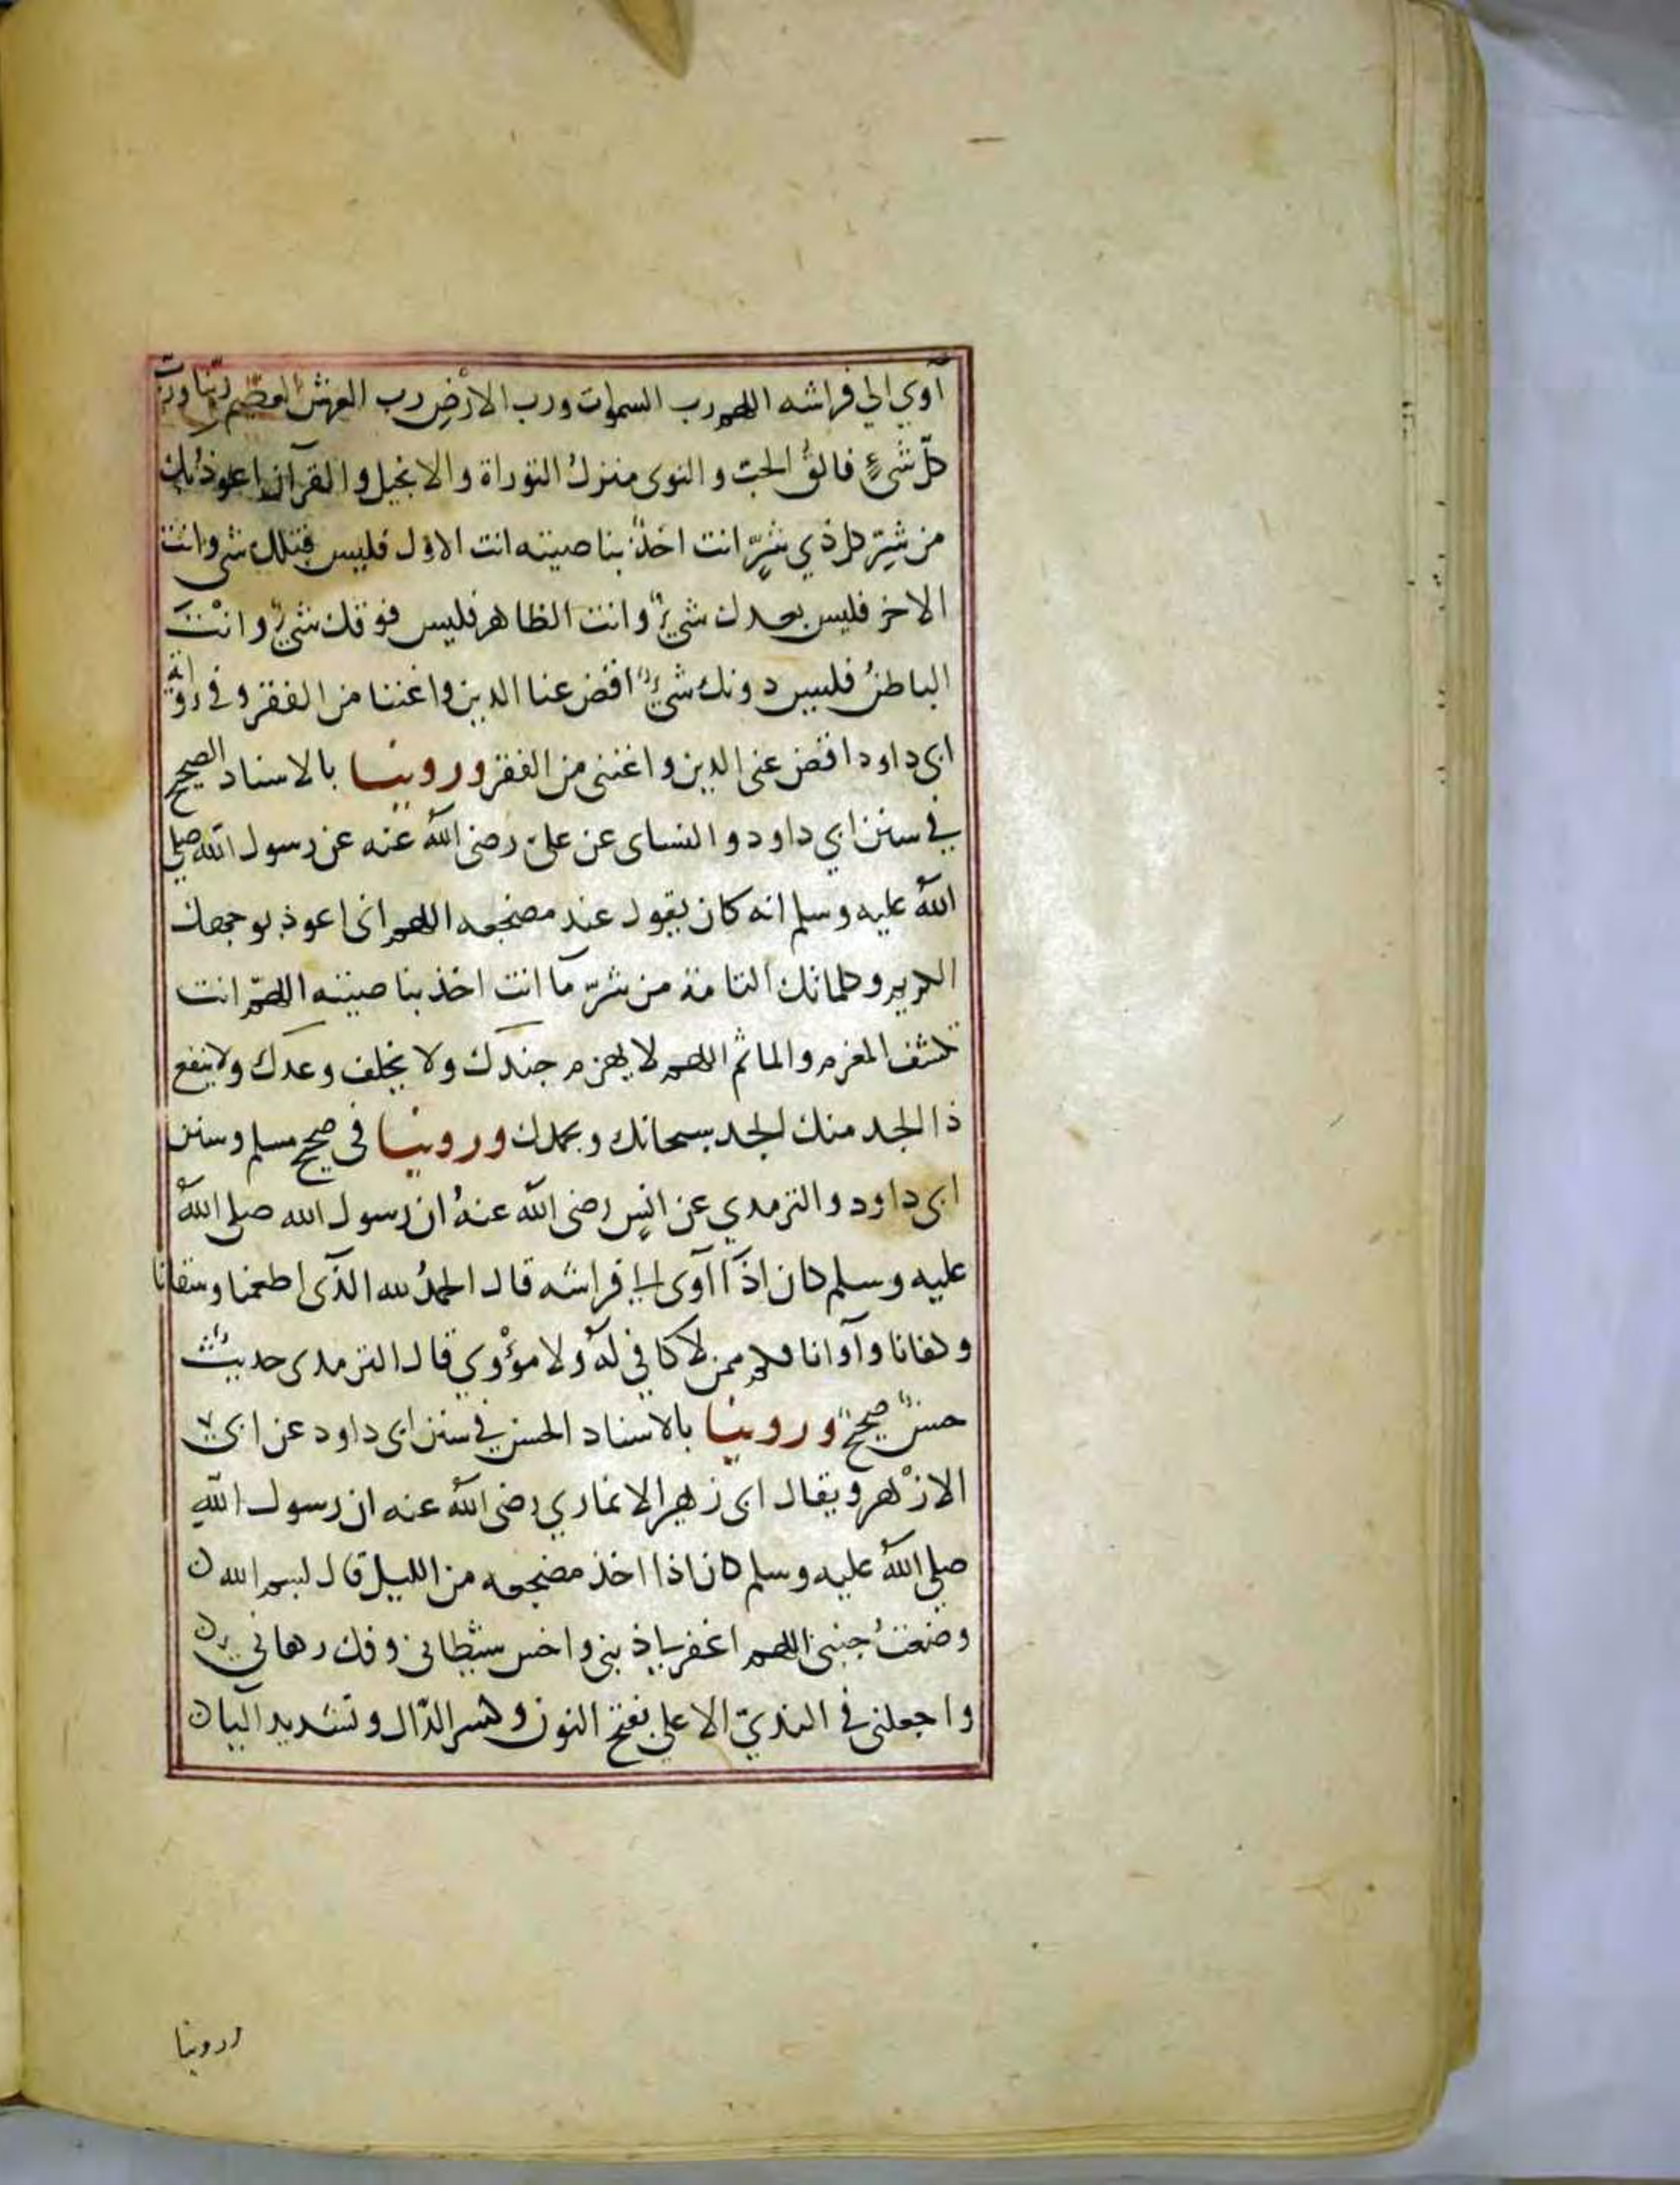 آوي الي فراشه اللهم رب السموات ورب الارض رب العرش العظيم ربنا ورب
كل شيءٍ فالق الحبّ والنوى منزل التوراة والانجيل والقرآن اعوذ بك
من شرّ كل ذي شرٍّ انت اخذ بناصيته انت الاول فليس قبلك شي وانت
الاخر فليس بعدك شيءٌ وانت الظاهر فليس فوقك شيءٌ وانت
الباطنُ فليس دونك شيءٌ اقض عنا الدين واغننا من الفقر وفي رواية
ابى داود اقض عنى الدين واغننى من الفقر وروينا بالاسناد الصحيح
في سنن ابي داود والنساى عن علي رضى اللهُ عنه عن رسول الله صلي
اللهُ عليه وسلم انه كان يقول عند مضجعه اللهم انى اعوذ بوجهك
الكريم وكلماتك التامة من شرّ ما انت اخذ بناصيته اللهمّ انت
تكشف المغرم والماثم اللهم لا يهزم جندك ولا يخلف وعدك ولا ينفع
ذا الجد منك الجد سبحانك وبحمدك وروينا فى صحيح مسلم وسنن
ابى داود والترمدي عن انسٍ رضى الله عنهُ ان رسول الله صلى اللهُ
عليه وسلم كان اذا آوى الي فراشه قال الحمدُ لله الذى اطعمنا وسقانا
وكفانا وآوانا فكم ممن لا كافي لهُ ولا مؤْوي قال الترمدى حديثٌ
حسنٌ صحيحٌ وروينا بالاسناد الحسن في سنن ابى داود عن ابى
الازْهر ويقال ابى زهير الانمارى رضى اللهُ عنه ان رسول اللهِ
صلي اللهُ عليه وسلم كان اذا اخذ مضجعه من الليل قال بسم الله
وضعتُ جنبى اللهم اغفر لي ذنبى واخس شيطانى وفك رهانى
واجعلنى في النديّ الاعلي بفتح النون وكسر الدّال وتشديد اليا
وروينا